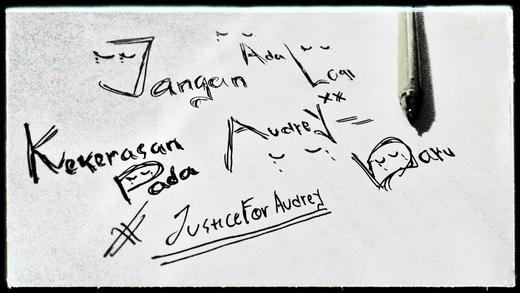 Jangan Ada Lagi
Kekerasan
Pada Audrey Baru
#JusticeForAudrey